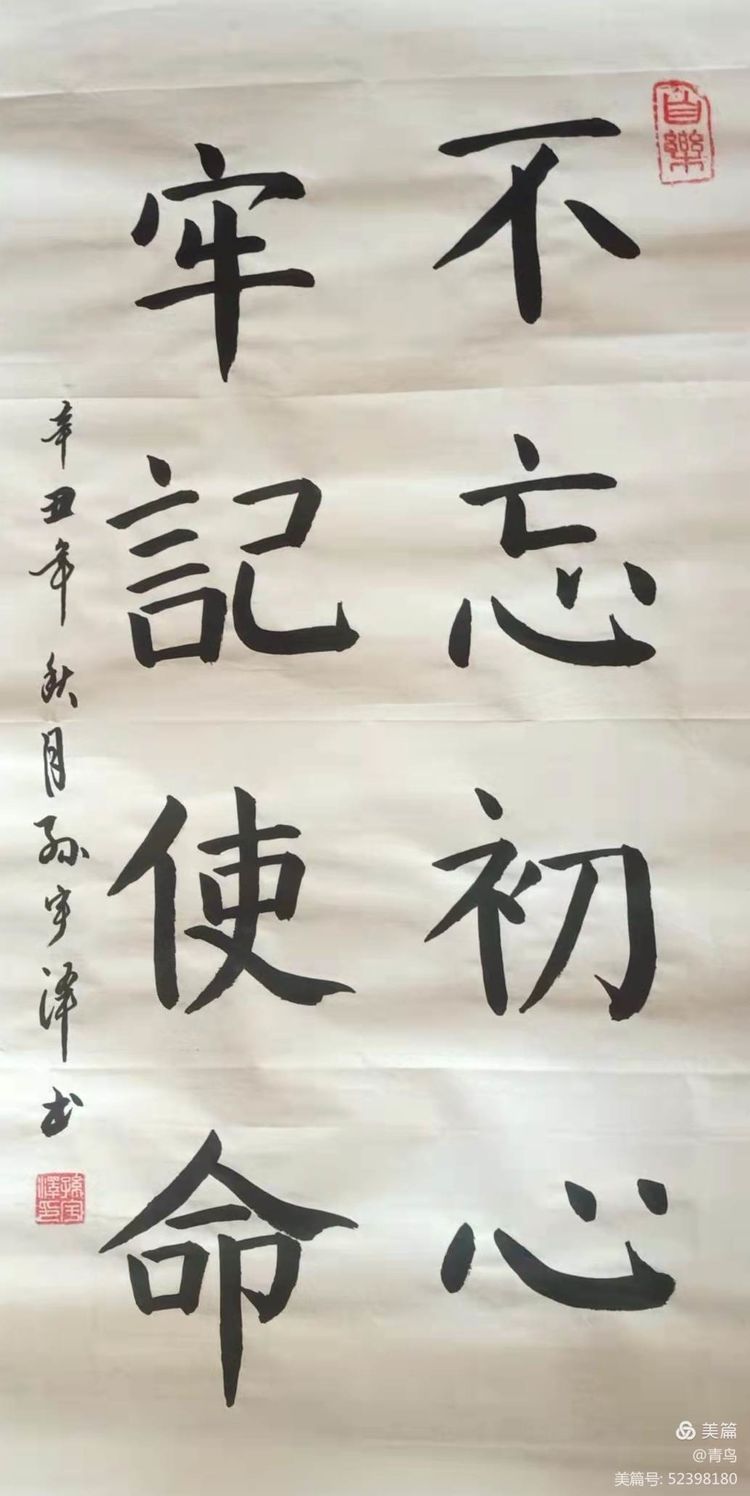 不忘初心
牢記使命
辛丑年秋月孙宇泽书
自樂
孫宇澤印
美篇
@青鸟
美篇号: 52398180